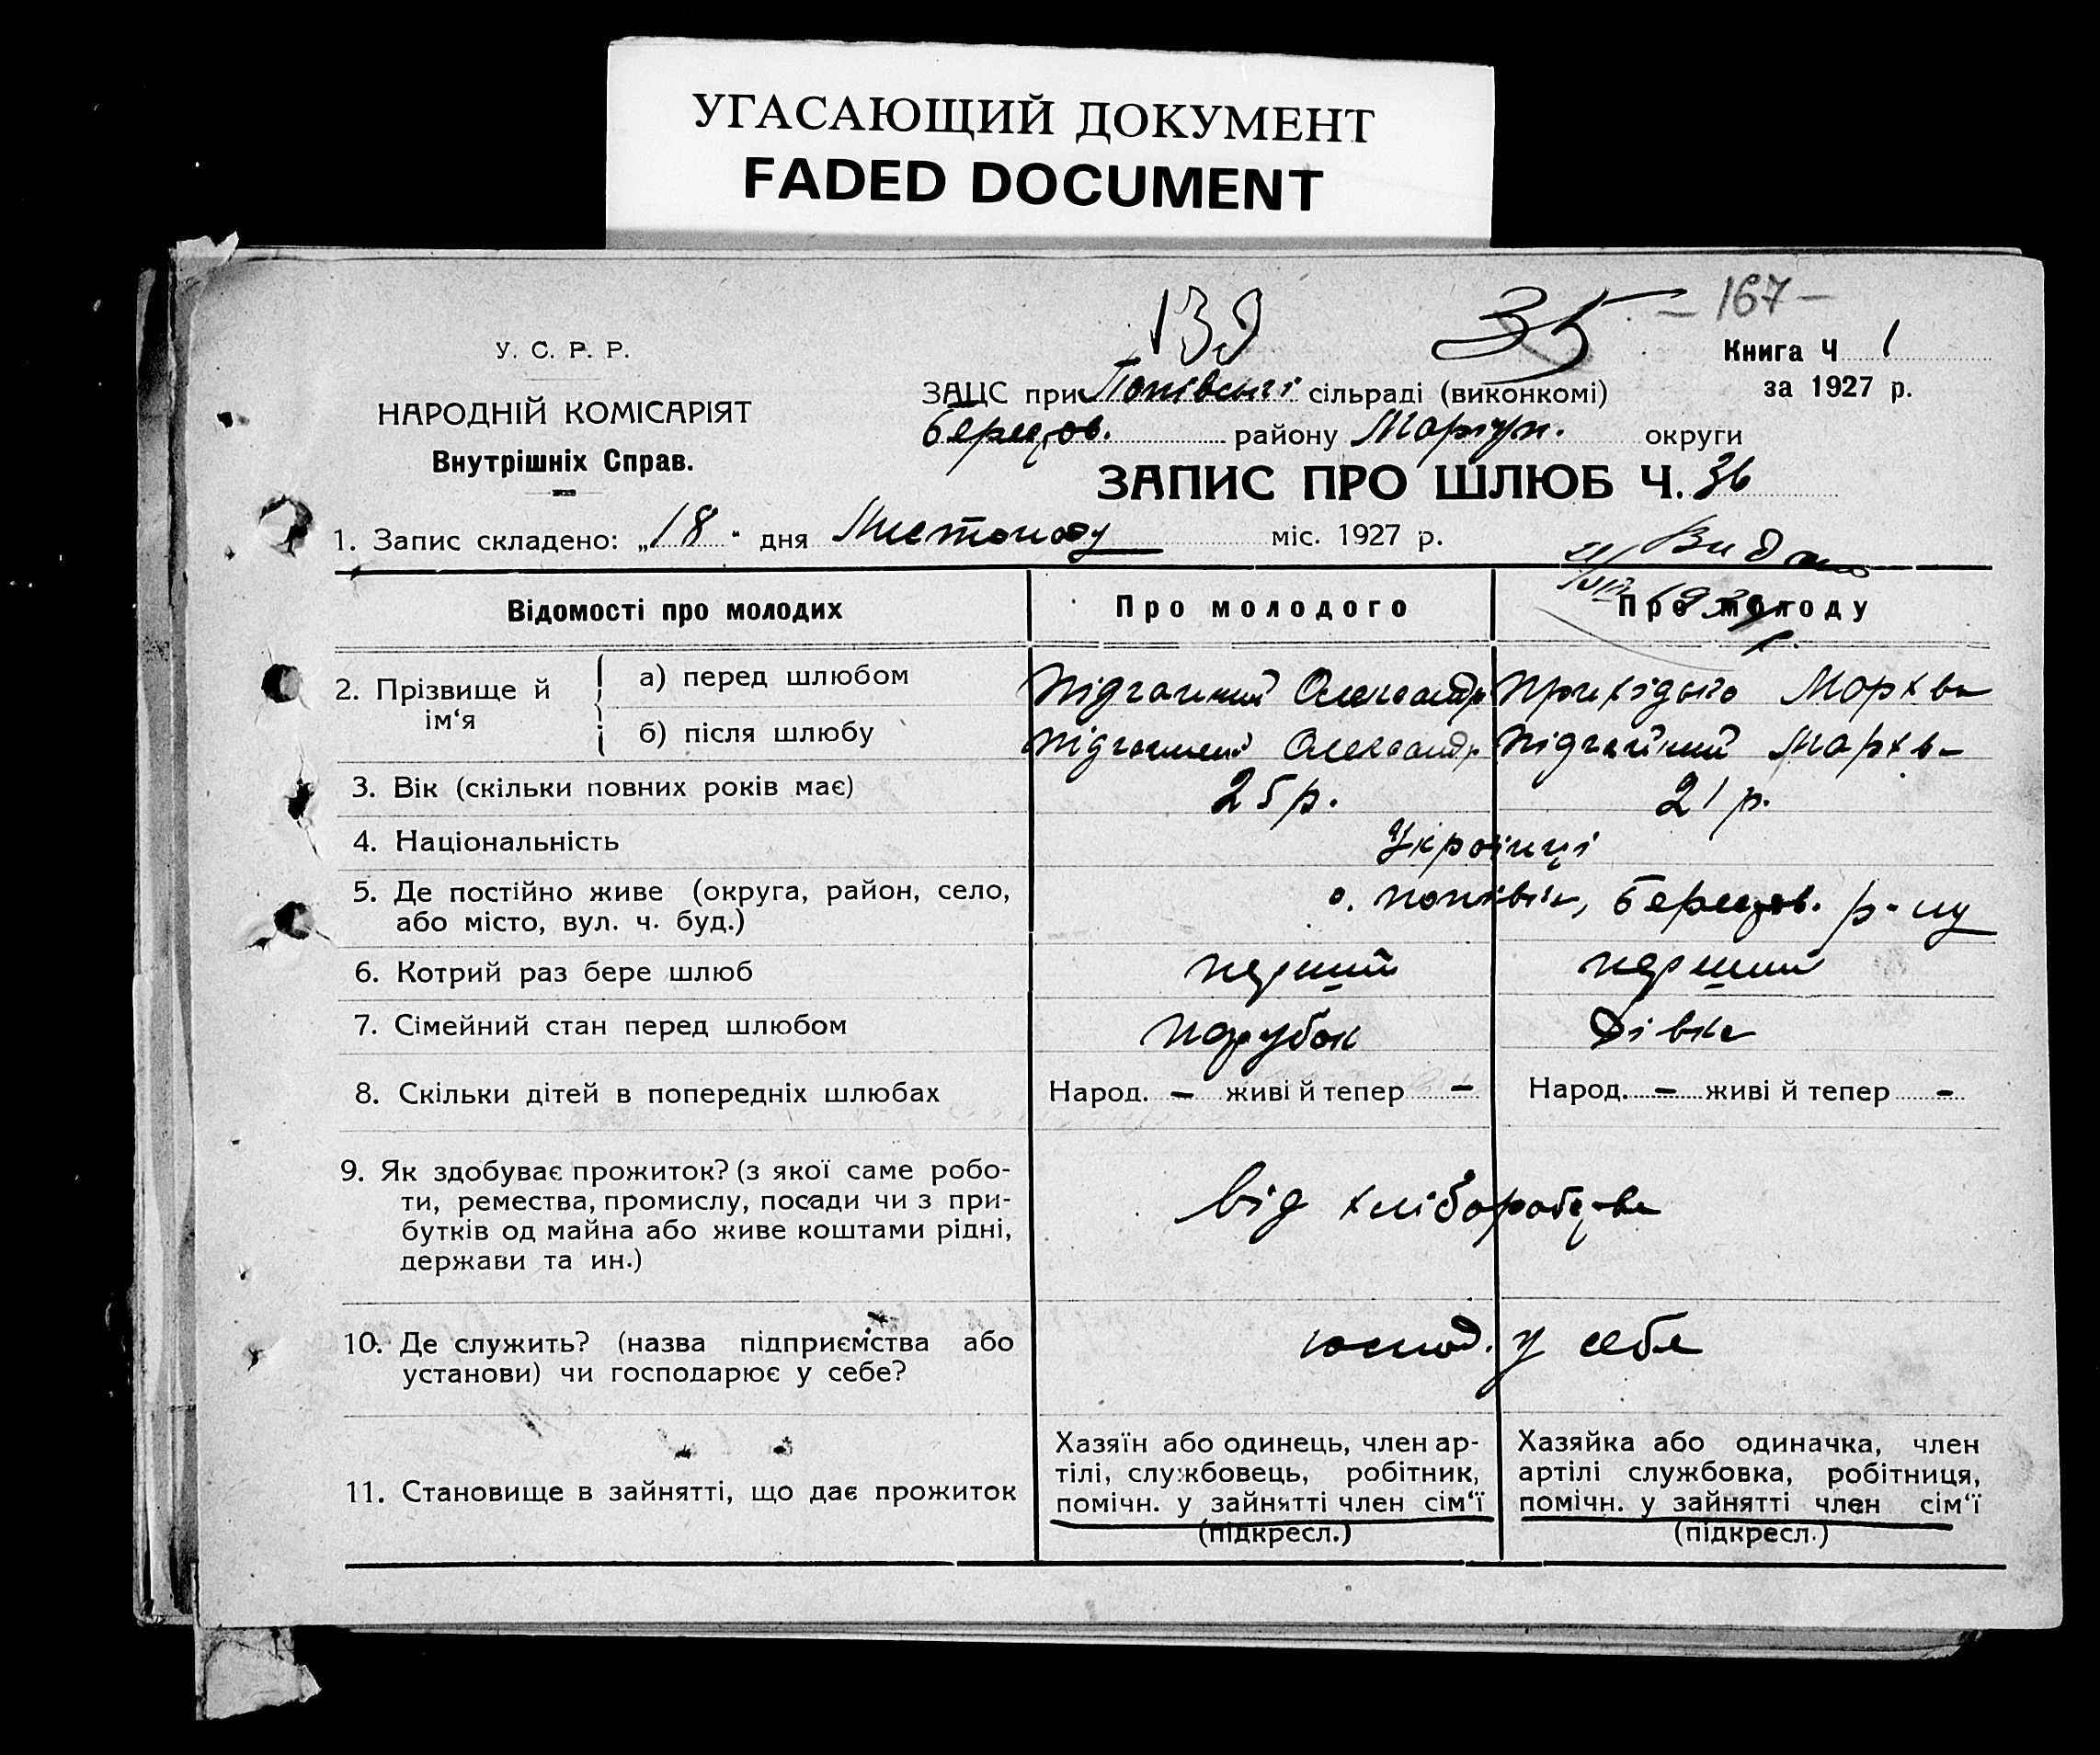 УГАСАЮЩИЙ ДОКУМЕНТ
FADED DOCUMENT
139 35 – 167 –
У. С. Р. Р.
НАРОДНІЙ КОМІСАРІЯТ
Внутрішніх Справ.
Книга Ч 1
за 1927 р.
ЗАЦС при Попівській сільраді (виконкомі)
району округи
ЗАПИС ПРО ШЛЮБ Ч. 36
1. Запис складено: „18" дня Листопаду міс. 1927 р.
Видано
Відомості про молодих Про молодого Про молоду
2. Прізвище й ім‘я
а) перед шлюбом Підгайний Олександр
б) після шлюбу Підгайний Олександр Підгайний
3. Вік (скільки повних років має) 25 р. 21 р.
4. Національність Українці
5. Де постійно живе (округа, район, село,
або місто, вул. ч. буд.) р-ну
6. Котрий раз бере шлюб перший перший
7. Сімейний стан перед шлюбом парубок дівка
8. Скільки дітей в попередніх шлюбах Народ. – живі й тепер – Народ. – живі й тепер –
9. Як здобуває прожиток? (з якої саме робо-
ти, ремества, промислу, посади чи з при-
бутків од майна або живе коштами рідні,
держави та ин.)
від хліборобства
10. Де служить? (назва підприємства або
установи) чи господарює у себе?
господ. у себе
11. Становище в зайнятті, що дає прожиток
Хазяїн або одинець, член ар-
тілі, службовець, робітник,
помічн. у зайнятті член сім‘ї
(підкресл.)
Хазяйка або одиначка, член
артілі службовка, робітниця,
помічн. у зайнятті член сім‘ї
(підкресл.)